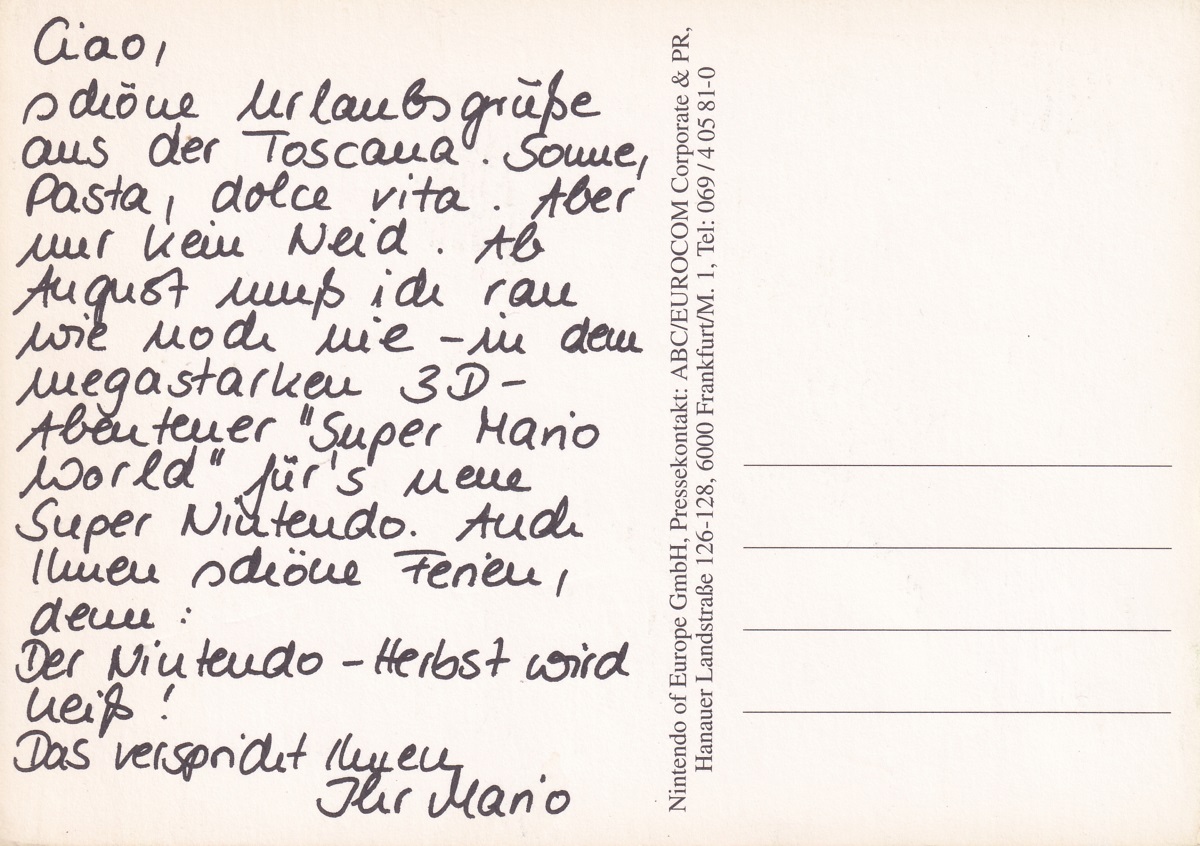 Ciao,
schöne Urlaubsgrüße
aus der Toscana. Sonne,
Pasta, dolce vita. Aber
nur kein Neid. Ab
August muß ich ran
wie noch nie - in dem
megastarken 3D-
Abenteuer "Super Mario
World" für's neue
Super Nintendo. Auch
Ihnen schöne Ferien,
denn:
Der Nintendo-Herbst wird
heiß!
Das verspricht Ihnen
Ihr Mario
Nintendo of Europe GmbH, Pressekontakt: ABC/EUROCOM Corporate & PR,
Hanauer Landstraße 126-128, 6000 Frankfurt/M. 1, Tel: 069 / 4 05 81-0